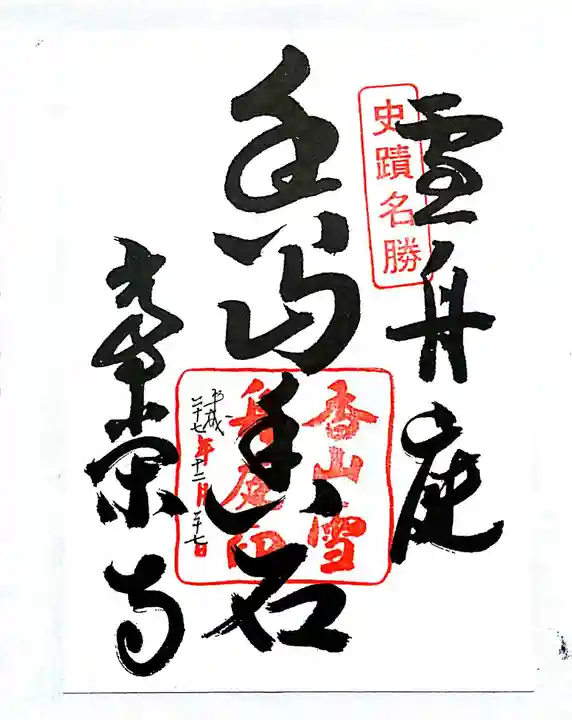 雪舟庭
史蹟名勝
石
香山雪
舟庭印
平成
二十七年十二月二十七日
常栄寺